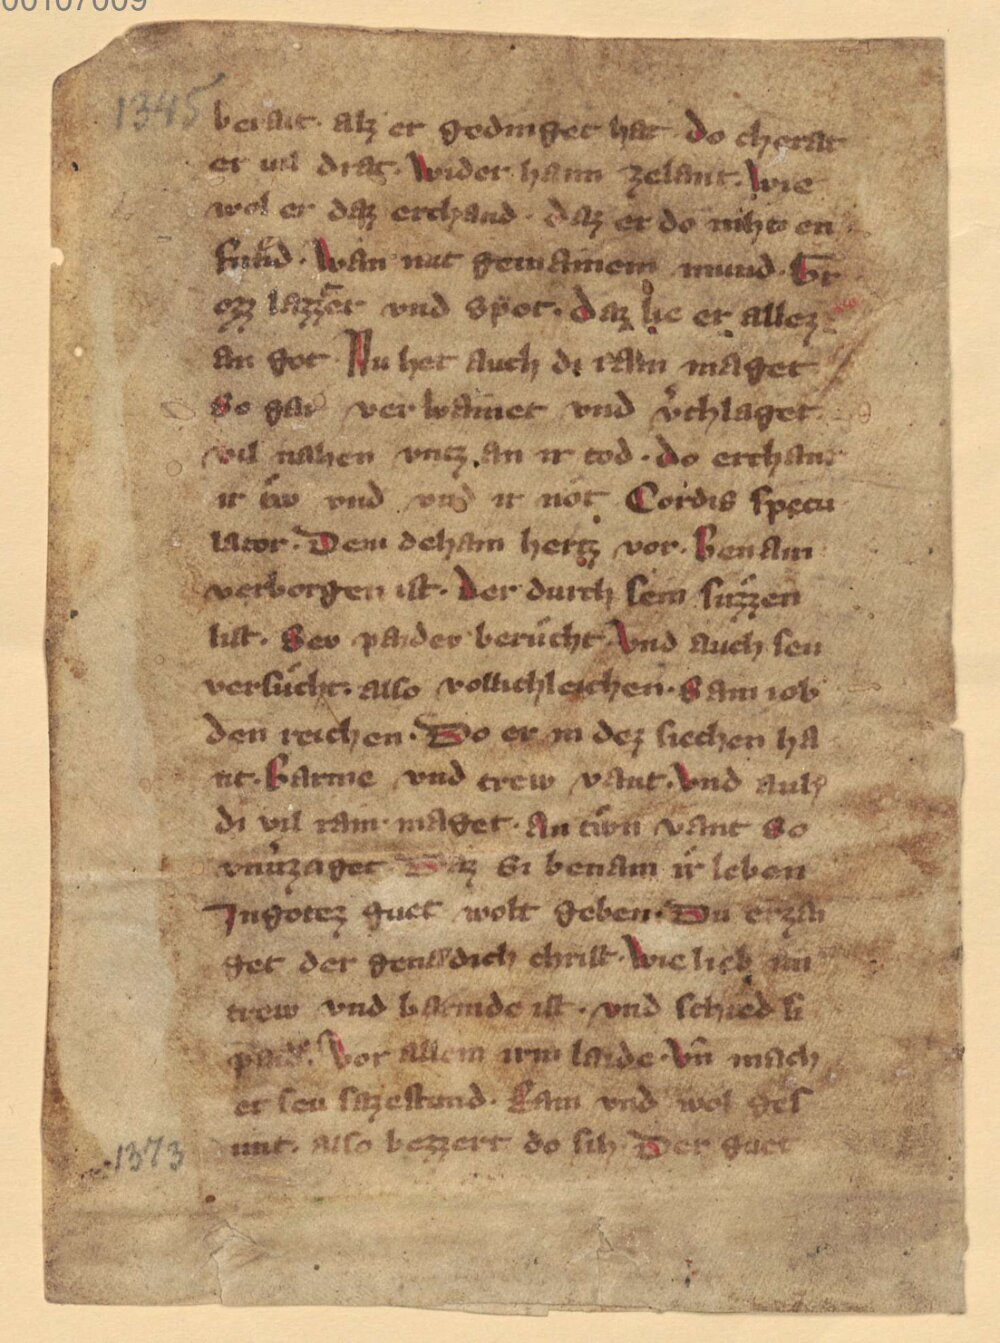 00107009
1345
berait. alz er gedinget hat. do cherat
er vil drat. Wider haim zelant. Wie
wol er daz erchand. daz er do nihts en
fund. Wan mit gemainem mund. Gr
ozz lazzer vnd spöt. Daz lie er allez
an got Nu het auch di rain maget
So gar verwainet vnd v̓chlaget
vil nahen vntz an ir tod. do erchant
ir trw vnd ir nöt. Cordis specu
lator. Dem dehain hertz vor. Benam
verborgen ist. Der durch sein suzzen
list. Sev paider berücht. Vnd auch seu
versücht. also vollichleichen. Sam iob
den reichen. Do er in dez siechen ha
nt. Barme vnd trew vant. Vnd auh
di vil rain maget. An trwn vant So
vnuzaget. Daz Si benam ir leben
In gotez guet wolt geben. Du erzai
get der genadich christ. Wie lieb im
trew vnd barmde ist. vnd schied si
paid. Vor allem irm laide. Vn̄ mach
et seu sazestund. Rain vnd wol ges
unt. also bezzert do sih. Der guet
1373